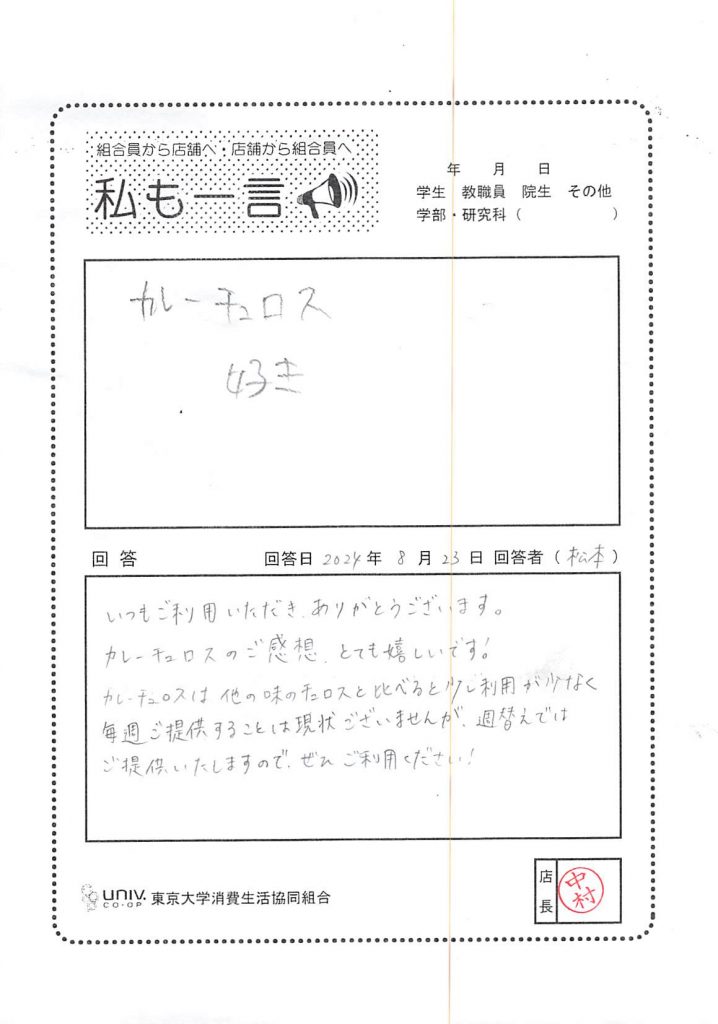 組合員から店舗へ・店舗から組合員へ
私も一言
年 月 日
学生 教職員 院生 その他
学部・研究科（ ）
カレーチュロス
好き
回答 回答日 2024年 8月 23日 回答者（松本）
いつもご利用いただき、ありがとうございます。
カレーチュロスのご感想、とても嬉しいです!
カレーチュロスは他の味のチュロスと比べると少し利用が少なく
毎週ご提供することは現状ございませんが、週替えでは
ご提供いたしますので、ぜひご利用ください!
UNIV. CO-OP 東京大学消費生活協同組合
店長 中村